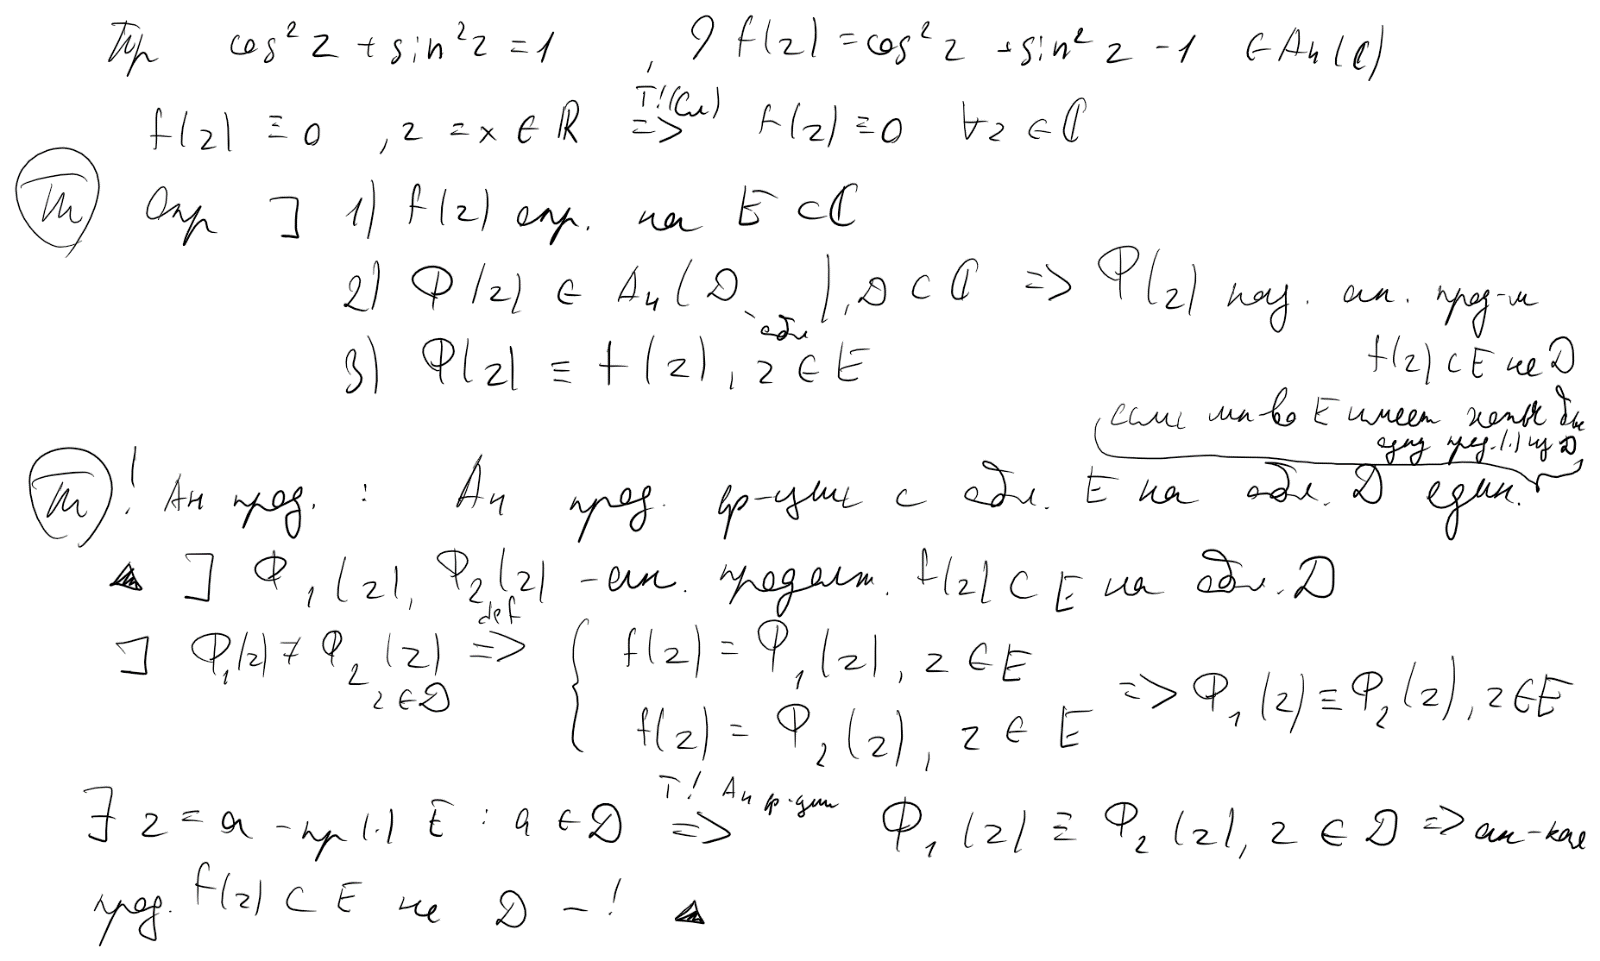 Пр cos² z + sin² z = 1 , ] f(z) = cos² z + sin² z - 1 ∈ Ан(ℂ)
f(z) ≡ 0 , z = x ∈ ℝ T!(Сл) => f(z) ≡ 0 ∀z ∈ ℂ
(Т) Опр ] 1) f(z) опр. на E ⊂ ℂ
2) Φ(z) ∈ Ан(D - обл), D ⊂ ℂ => Φ(z) наз. ан. прод-м
3) Φ(z) ≡ f(z), z ∈ E f(z) с E на D
если мн-во E имеет хотя бы
одну пред. (.) из D
(Т)! Ан прод. : Ан прод. ф-уии с обл. E на обл. D един.
▲ ] Φ₁(z), Φ₂(z) - ан. продолж. f(z) с E на обл. D
] Φ₁(z) ≠ Φ₂(z) z ∈ D def => { f(z) = Φ₁(z), z ∈ E
f(z) = Φ₂(z), z ∈ E => Φ₁(z) ≡ Φ₂(z), z ∈ E
∃ z = a - пр (.) E : a ∈ D T! Ан ф-уии => Φ₁(z) ≡ Φ₂(z), z ∈ D => ан-кое
прод. f(z) с E на D - ! ▲